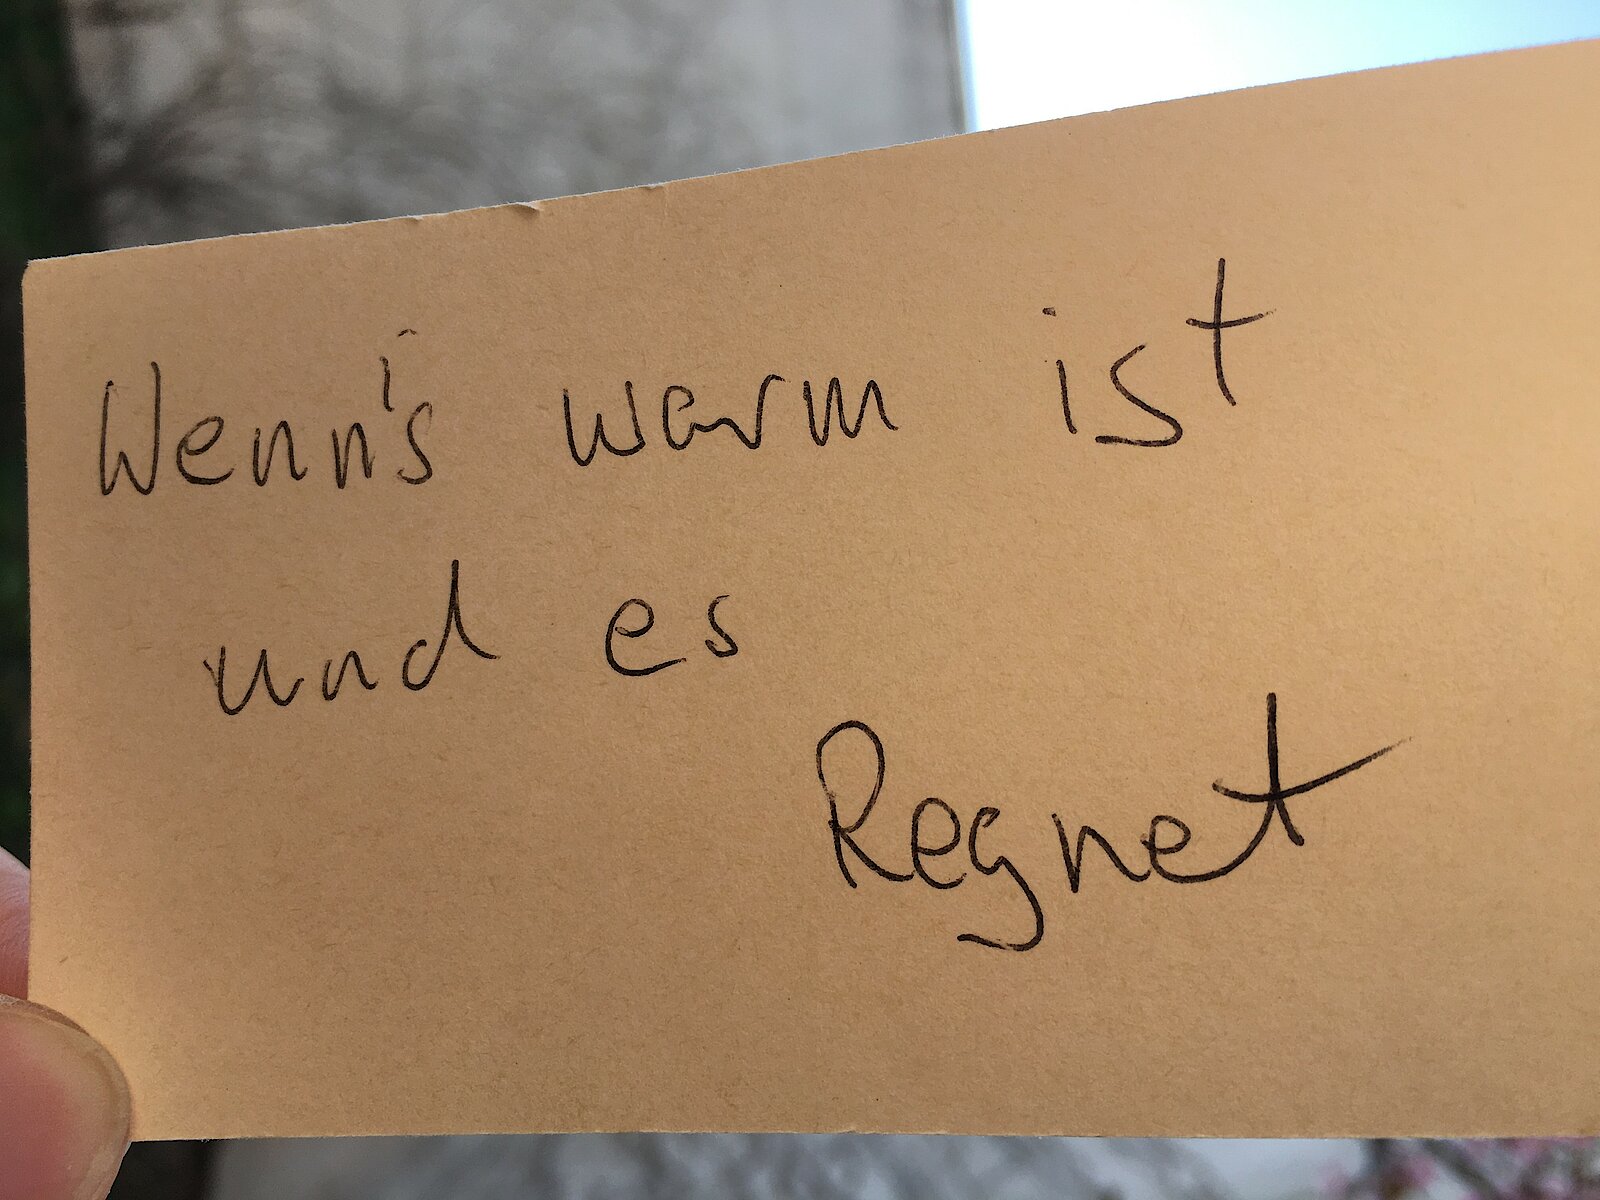 Wenn's warm ist
und es
Regnet